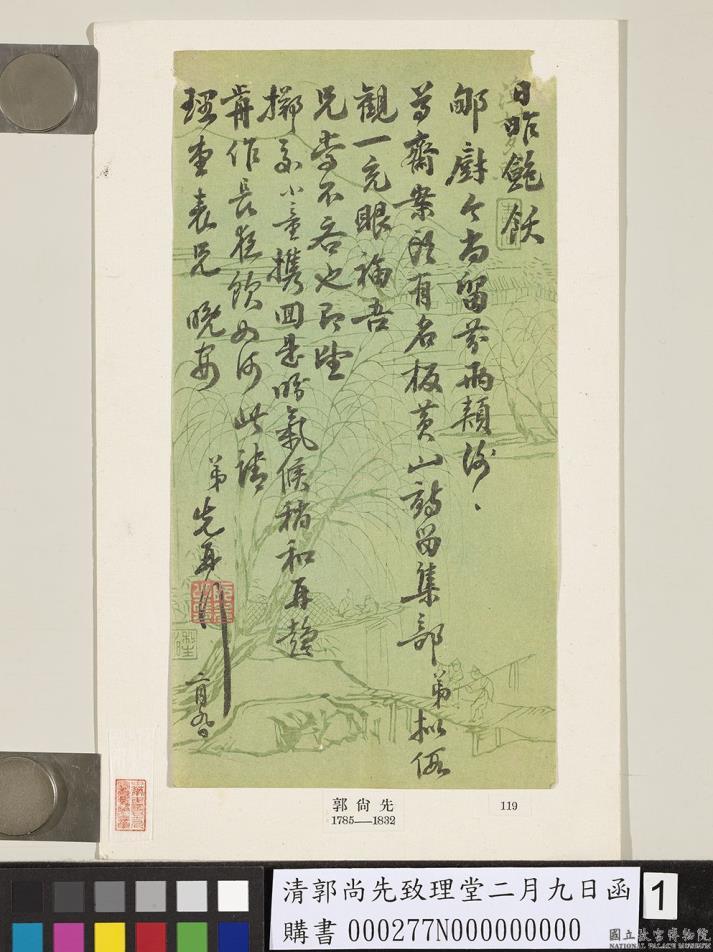 日昨飽飫
郇廚今尚留芬兩頰謝〻
尊齋案頭有名板黃山集部弟擬假
觀一充眼福吾
兄當不吝也即望
擲交小童攜回是盼氣候稍和再趨
齋作長夜飲如何此請
理堂表兄 晚安
弟先再拜
二月九日
郭尚先
1785—1832
119
清郭尚先致理堂二月九日函
購書 000277N000000000
1
國立故宮博物院
NATIONAL PALACE MUSEUM